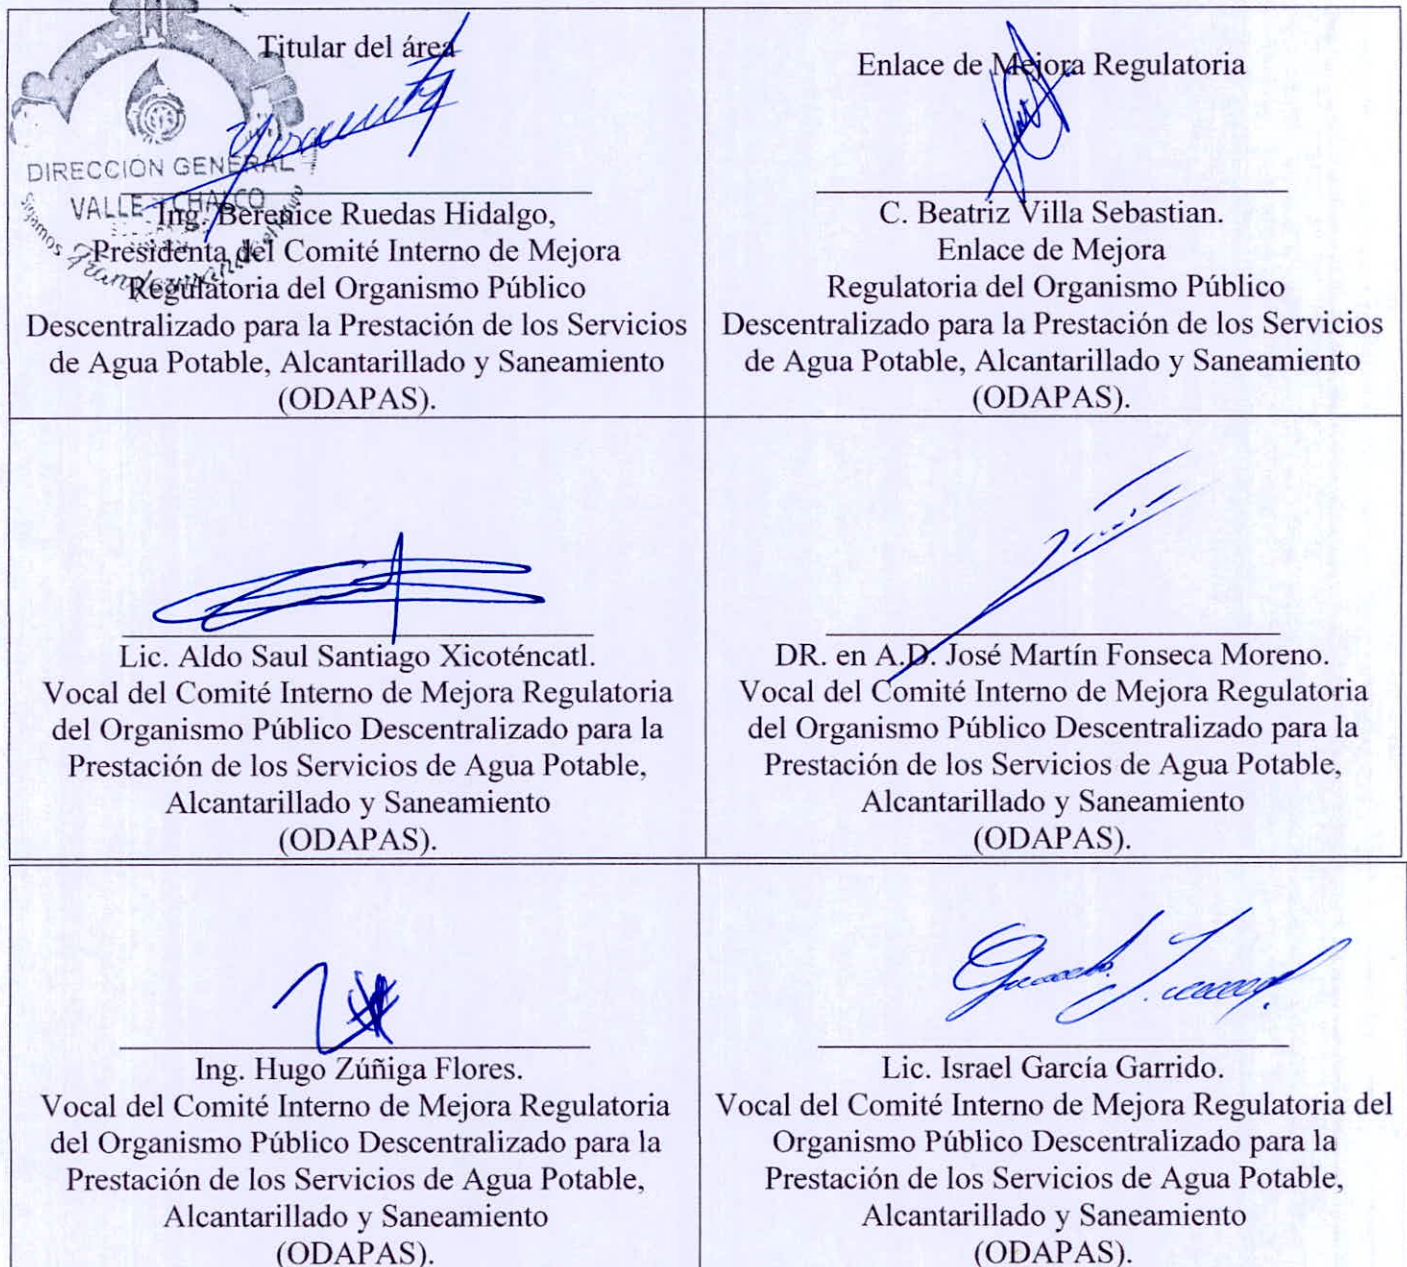 Titular del área
DIRECCIÓN GENERAL
VALLE CHALCO
Sigamos
Ing. Berenice Ruedas Hidalgo,
Presidenta del Comité Interno de Mejora
Regulatoria del Organismo Público
Descentralizado para la Prestación de los Servicios
de Agua Potable, Alcantarillado y Saneamiento
(ODAPAS).
Enlace de Mejora Regulatoria
C. Beatriz Villa Sebastian.
Enlace de Mejora
Regulatoria del Organismo Público
Descentralizado para la Prestación de los Servicios
de Agua Potable, Alcantarillado y Saneamiento
(ODAPAS).
Lic. Aldo Saul Santiago Xicoténcatl.
Vocal del Comité Interno de Mejora Regulatoria
del Organismo Público Descentralizado para la
Prestación de los Servicios de Agua Potable,
Alcantarillado y Saneamiento
(ODAPAS).
DR. en A.D. José Martín Fonseca Moreno.
Vocal del Comité Interno de Mejora Regulatoria
del Organismo Público Descentralizado para la
Prestación de los Servicios de Agua Potable,
Alcantarillado y Saneamiento
(ODAPAS).
Ing. Hugo Zúñiga Flores.
Vocal del Comité Interno de Mejora Regulatoria
del Organismo Público Descentralizado para la
Prestación de los Servicios de Agua Potable,
Alcantarillado y Saneamiento
(ODAPAS).
Lic. Israel García Garrido.
Vocal del Comité Interno de Mejora Regulatoria del
Organismo Público Descentralizado para la
Prestación de los Servicios de Agua Potable,
Alcantarillado y Saneamiento
(ODAPAS).